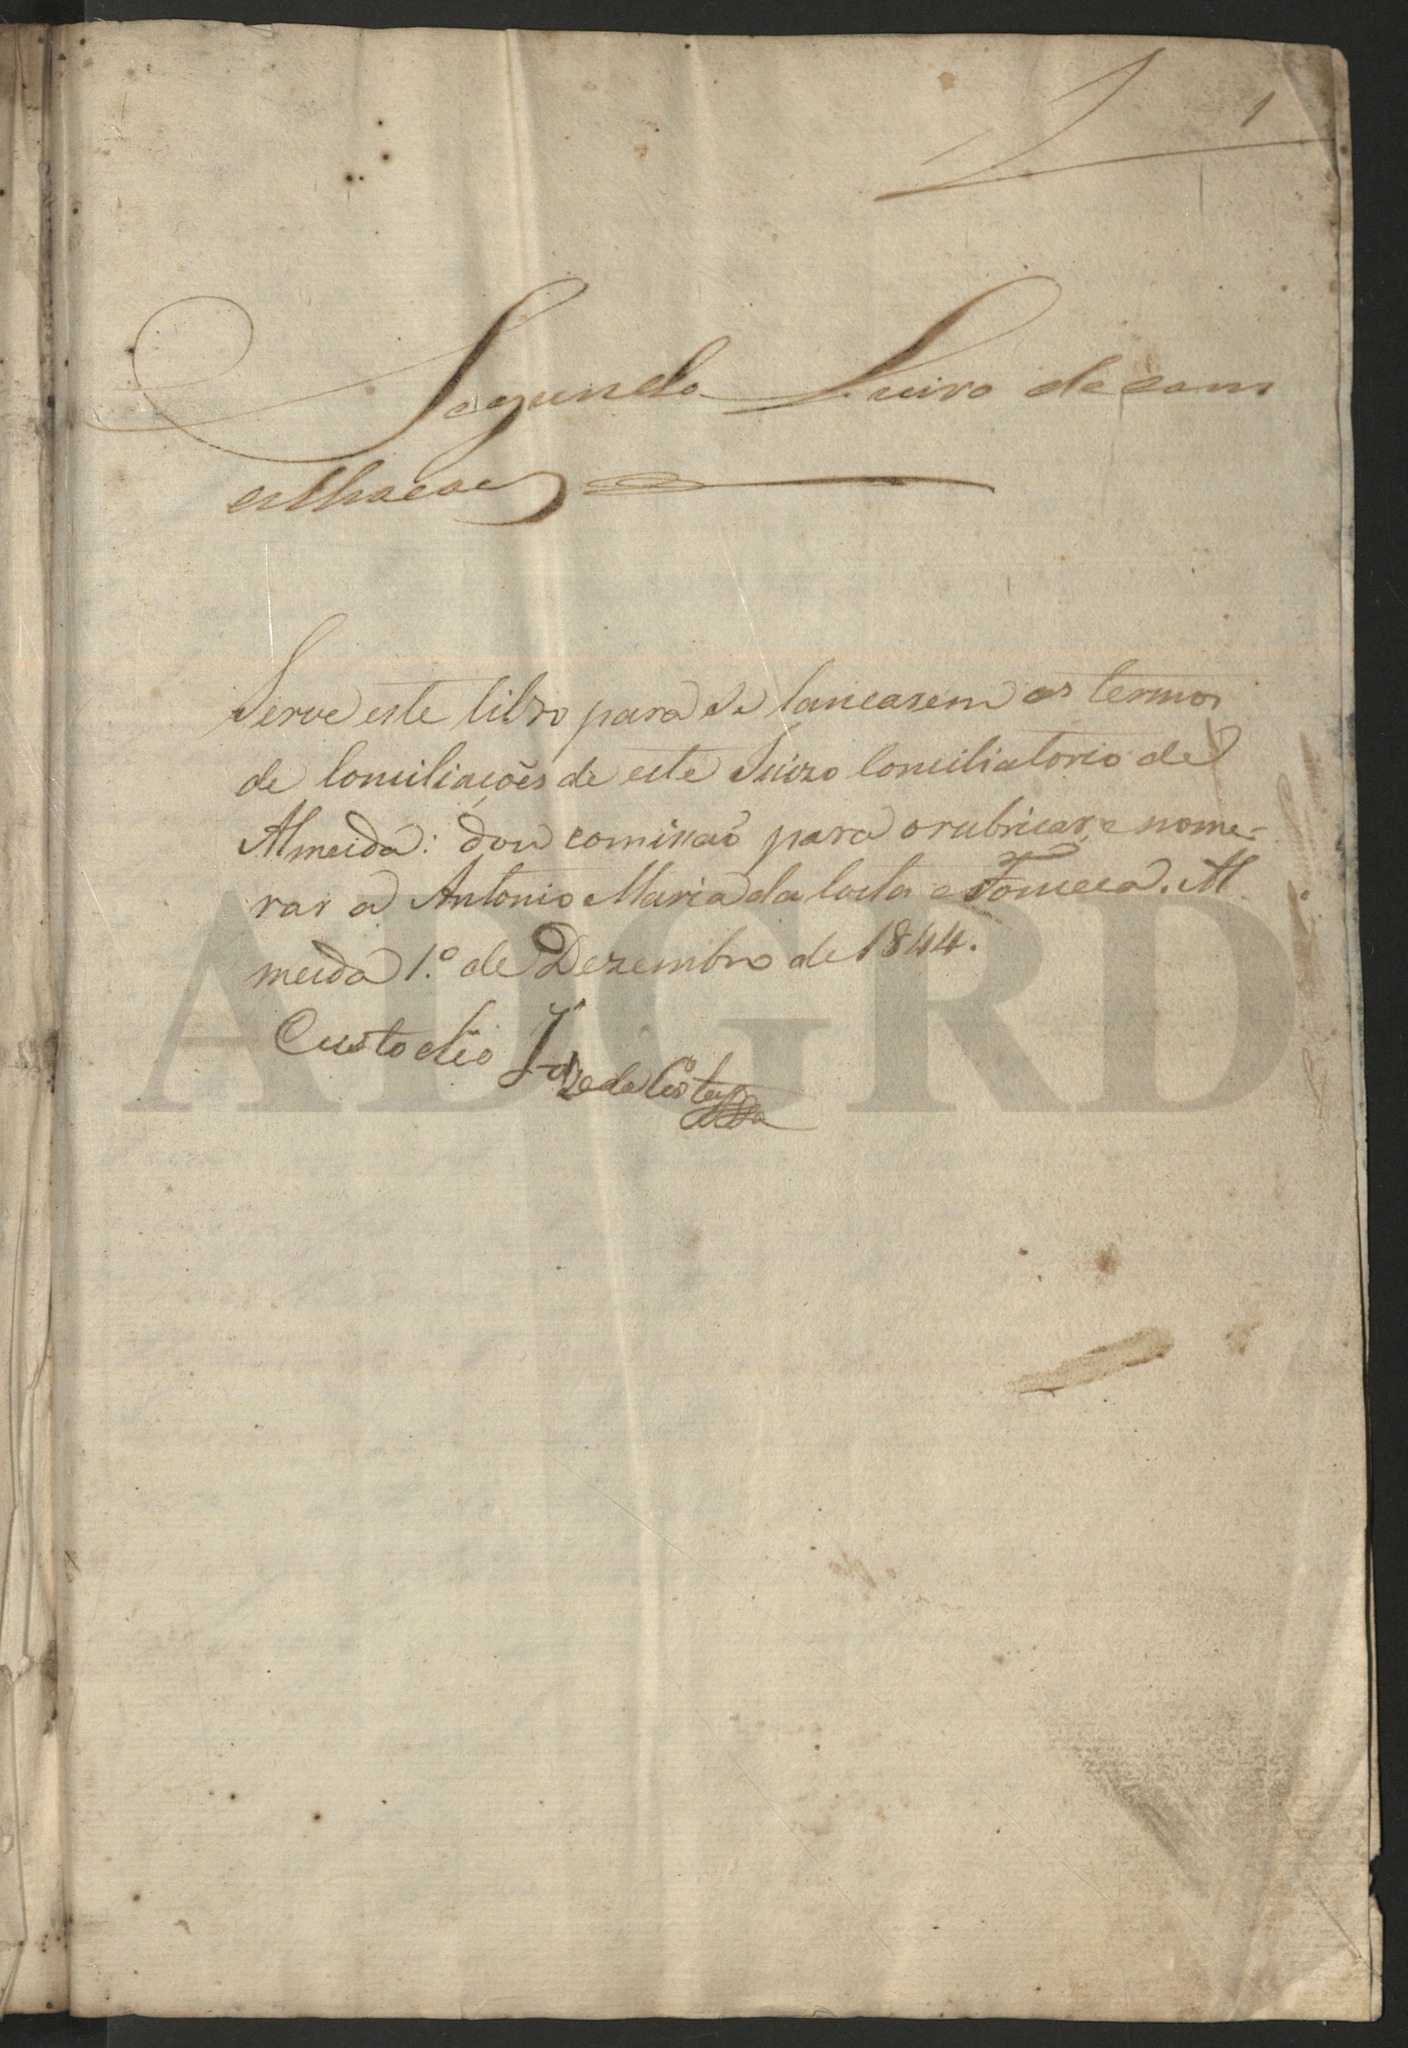 1
Segundo Livro de con
cilhacoes
Serve este libro para se lancasem os termos
de Conciliacões de este Juizo Conciliatorio de
Almeida: dou comissaõ para o rubricar e nome-
rar a Antonio Maria da Costa e Fonceca. Al
meida 1.º de Dezembro de 1844.
Custodio Joze da Costa
ADGRD